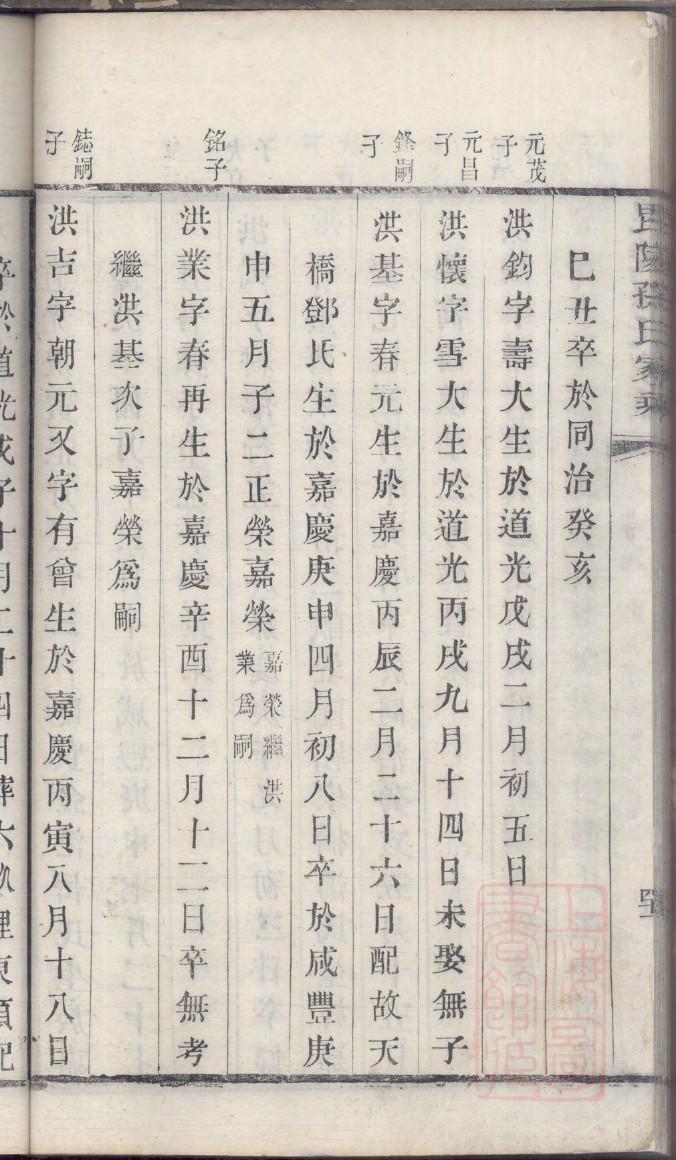 暨陽孫氏家乘
己丑卒於同治癸亥
元茂子
洪鈞字壽大生於道光戊戌二月初五日
元昌子
洪懷字雪大生於道光丙戌九月十四日未娶無子
鋒嗣子
洪基字春元生於嘉慶丙辰二月二十六日配故天
橋鄧氏生於嘉慶庚申四月初八日卒於咸豐庚
申五月子二正榮嘉榮嘉榮繼洪業爲嗣
銘子
洪業字春再生於嘉慶辛酉十二月十二日卒無考
繼洪基次子嘉榮爲嗣
鋕嗣子
洪吉字朝元又字有曾生於嘉慶丙寅八月十八日
卒於道光戊子十月二十四日葬六